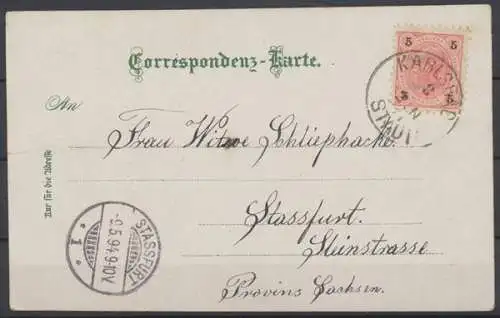 Correspondenz-Karte.
5 5
5 5
KARLSBAD
STADT
An
Frau Witwe Schliephacke.
Stassfurt.
Steinstrasse
Provinz Sachsen.
Nur für die Adresse
STASSFURT
-9.5.94.9-10V.
* 1 *